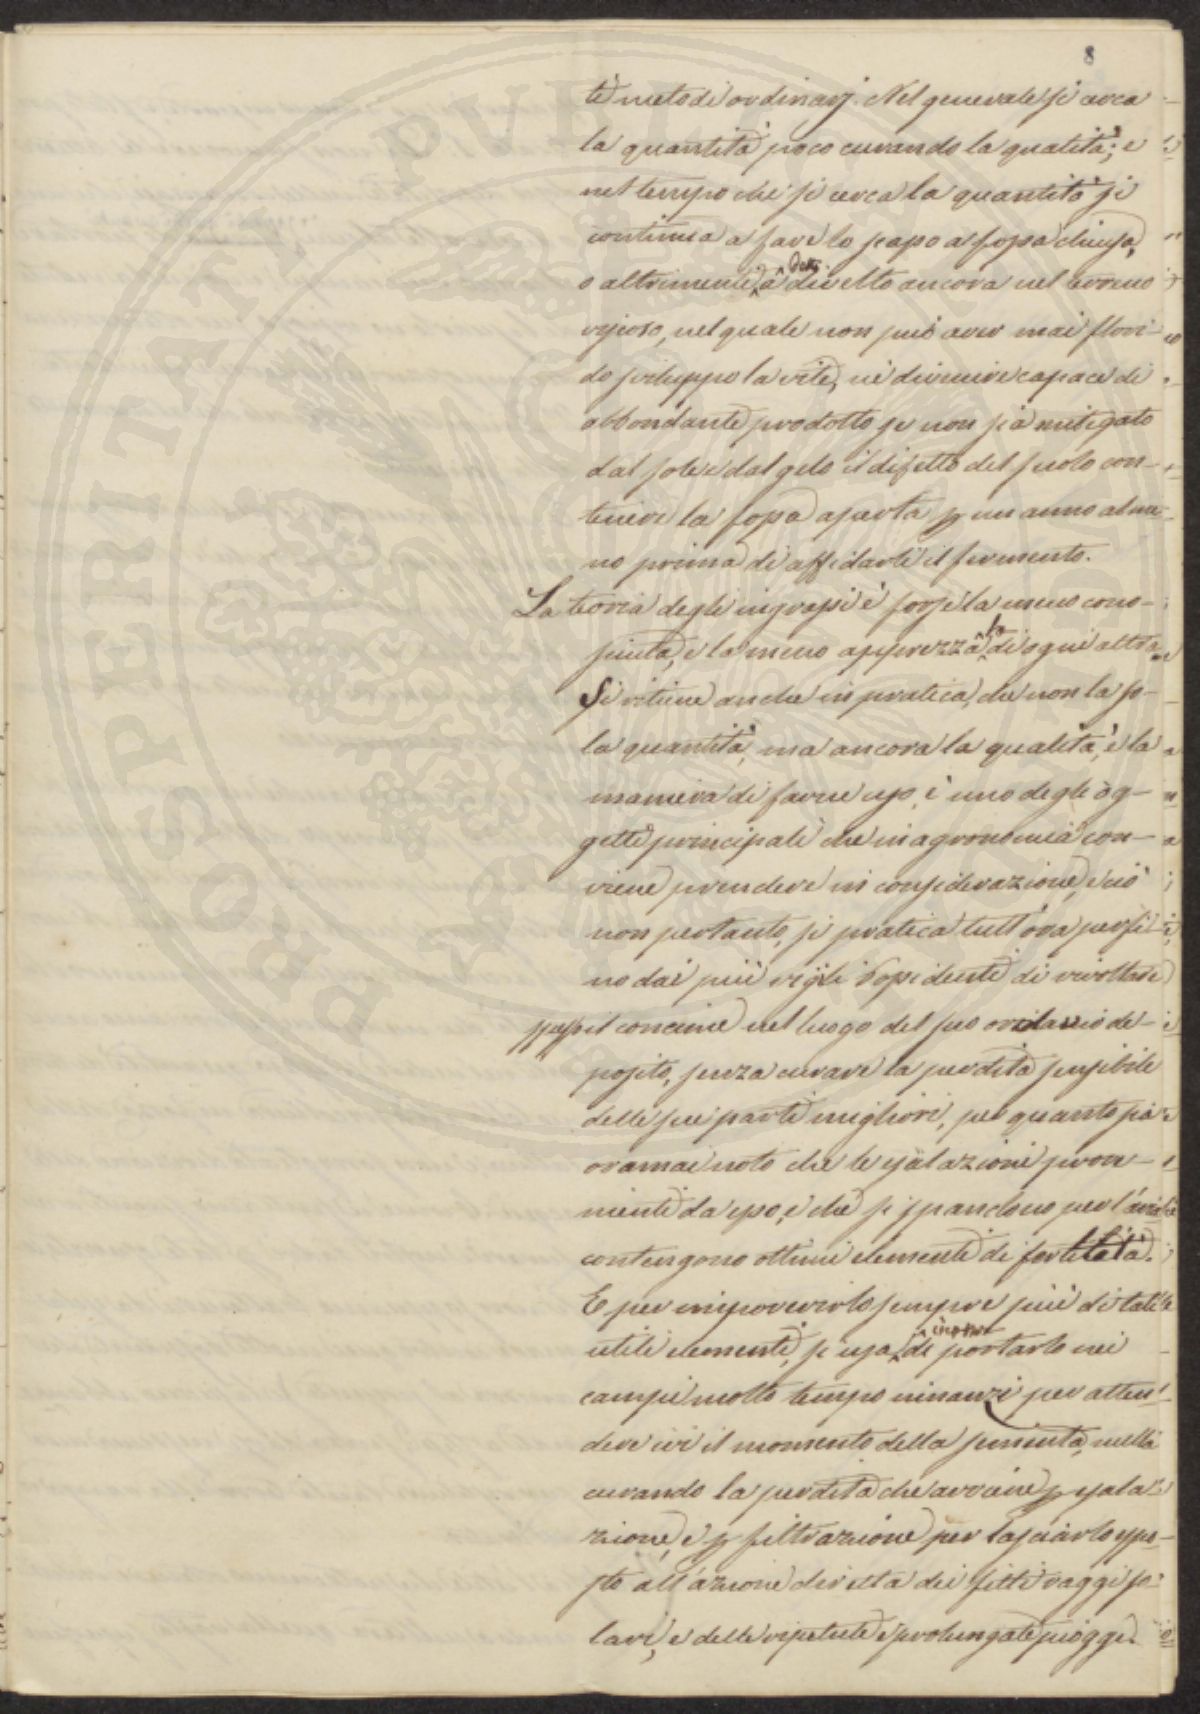 8
ti metodi ordinarj. Nel generale si cerca
la quantità poco curando la qualità; e
nel tempo che si cerca la quantità si
continua a fare lo scapo a fossa chiusa,
o altrimenti a detto divelto ancora nel terreno
vizioso, nel quale non può aver mai flori-
do sviluppo la vite, né divenire capace di
abbondante prodotto se non sia mitigato
dal sole e dal gelo il difetto del suolo con-
tenere la fossa aperta p un anno alme-
no prima di affidarli il sermento.
La teoria degli ingrassi è forse la meno cono-
sciuta, e la meno apprezzata di ogni altra.
Si ritiene anche in pratica, che non la so-
la quantità, ma ancora la qualità, e la
maniera di farne uso, è uno degli og-
getti principali che in agronomia con-
viene prendere in considerazione, e ciò
non pertanto, si pratica tutt'ora persi-
no dai più vigili Possidenti di rivoltare
spesso il concime nel luogo del suo ordinario de-
posito, senza curare la perdita sensibile
delle sue parti migliori, per quanto sia
oramai noto che le esalazioni prove-
nienti da esso, e che si spandono per l'aria
contengono ottimi elementi di fertilità.
E per impoverirlo sempre più di tali
utili elementi, si usa di portarlo nei
campi molto tempo innanzi per atten-
dere ivi il momento della sementa, nulla
curando la perdita che avviene p esala-
zione, e p filtrazione per lasciarlo espo-
sto all'azione diretta dei fitti raggi so-
lari, e delle ripetute e prolungate piogge.
PROSPERITATI PUBLICAE